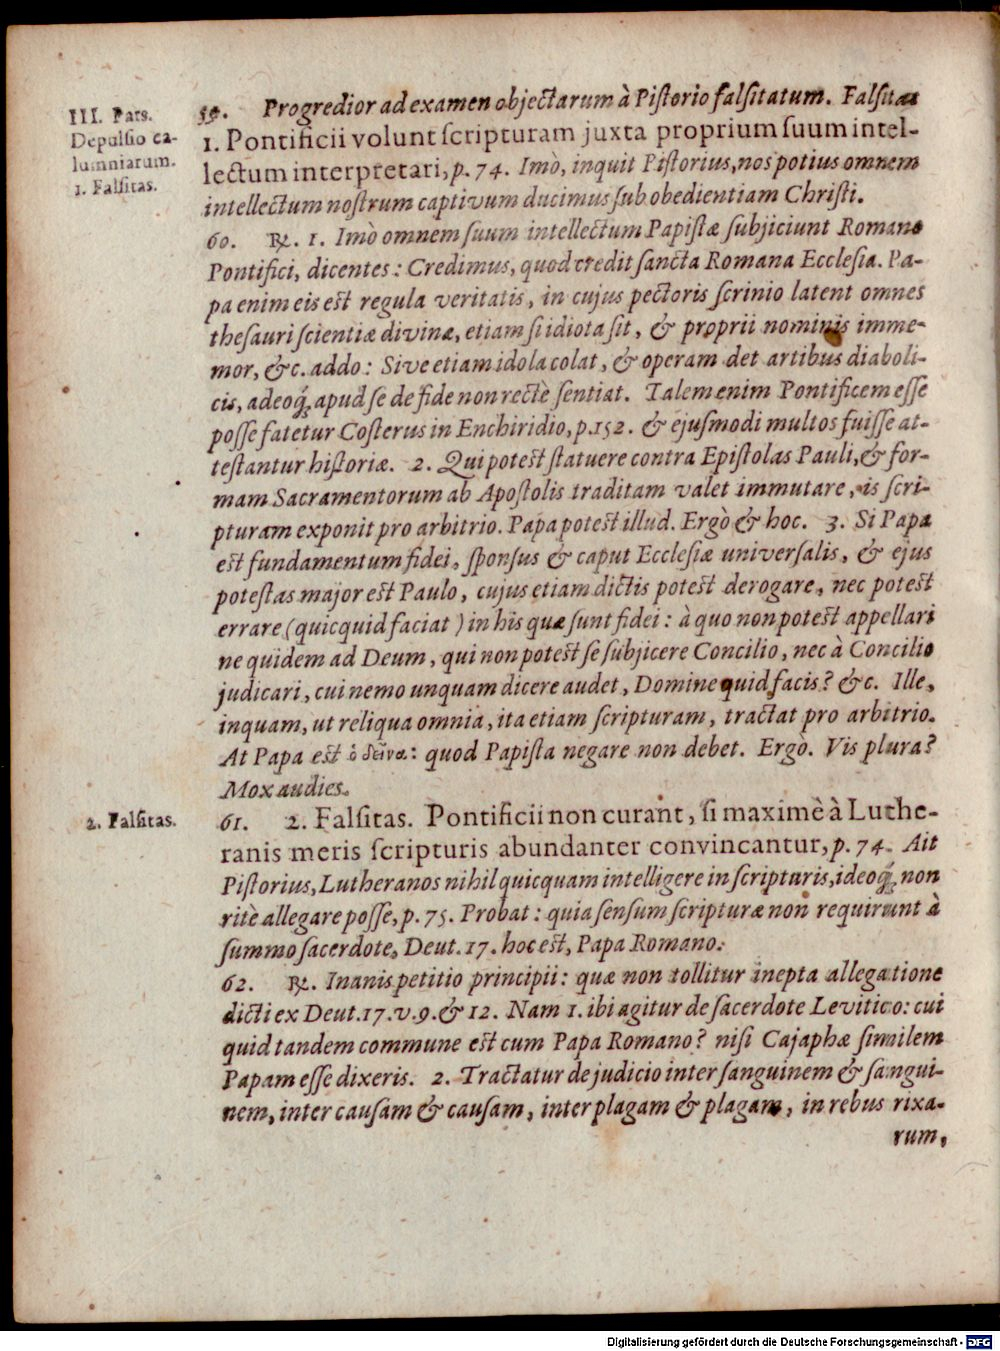 III. Pars.
Depulsio ca-
lumniarum.
1. Falsitas.
59. Progredior ad examen objectarum à Pistorio falsitatum. Falsitas
1. Pontificii volunt scripturam juxta proprium suum intel-
lectum interpretari, p. 74. Imò, inquit Pistorius, nos potius omnem
intellectum nostrum captivum ducimus sub obedientiam Christi.
60. ℞. 1. Imò omnem suum intellectum Papistæ subjiciunt Romano
Pontifici, dicentes: Credimus, quod credit sancta Romana Ecclesia. Pa-
pa enim eis est regula veritatis, in cujus pectoris scrinio latent omnes
thesauri scientiæ divinæ, etiam si idiota sit, & proprii nominis imme-
mor, &c. addo: Sive etiam idola colat, & operam det artibus diaboli-
cis, adeoq́; apud se de fide non rectè sentiat. Talem enim Pontificem esse
posse fatetur Costerus in Enchiridio, p. 152. & ejusmodi multos fuisse at-
testantur historiæ. 2. Qui potest statuere contra Epistolas Pauli, & for-
mam Sacramentorum ab Apostolis traditam valet immutare, is scri-
pturam exponit pro arbitrio. Papa potest illud. Ergò & hoc. 3. Si Papa
est fundamentum fidei, sponsus & caput Ecclesiæ universalis, & ejus
potestas major est Paulo, cujus etiam dictis potest derogare, nec potest
errare (quicquid faciat) in his quæ sunt fidei: à quo non potest appellari
ne quidem ad Deum, qui non potest se subjicere Concilio, nec à Concilio
judicari, cui nemo unquam dicere audet, Domine quid facis? &c. Ille,
inquam, ut reliqua omnia, ita etiam scripturam, tractat pro arbitrio.
At Papa est ὁ δεῖνα: quod Papista negare non debet. Ergò. Vis plura?
Mox audies.
2. Falsitas.
61. 2. Falsitas. Pontificii non curant, si maximè à Luthe-
ranis meris scripturis abundanter convincantur, p. 74. Ait
Pistorius, Lutheranos nihil quicquam intelligere in scripturis, ideoq́; non
ritè allegare posse, p. 75. Probat: quia sensum scripturæ non requirunt à
summo sacerdote, Deut. 17. hoc est, Papa Romano.
62. ℞. Inanis petitio principii: quæ non tollitur inepta allegatione
dicti ex Deut. 17. v. 9. & 12. Nam 1. ibi agitur de sacerdote Levitico: cui
quid tandem commune est cum Papa Romano? nisi Cajaphæ similem
Papam esse dixeris. 2. Tractatur de judicio inter sanguinem & sangui-
nem, inter causam & causam, inter plagam & plagam, in rebus rixa-
rum,
Digitalisierung gefördert durch die Deutsche Forschungsgemeinschaft - DFG